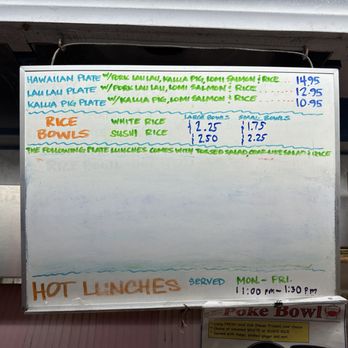 HAWAIIAN PLATE W/PORK LAU LAU, KALUA PIG, LOMI SALMON & RICE .... 14.95
LAU LAU PLATE W/PORK LAU LAU, LOMI SALMON & RICE ...... 12.95
KALUA PIG PLATE W/KALUA PIG, LOMI SALMON & RICE ...... 10.95
LARGE BOWLS SMALL BOWLS
RICE BOWLS
WHITE RICE $2.25 $1.75
SUSHI RICE $2.50 $2.25
THE FOLLOWING PLATE LUNCHES COMES WITH TOSSED SALAD, SALAD & RICE
HOT LUNCHES SERVED MON-FRI.
11:00 AM - 1:30 PM
Poke Bowl